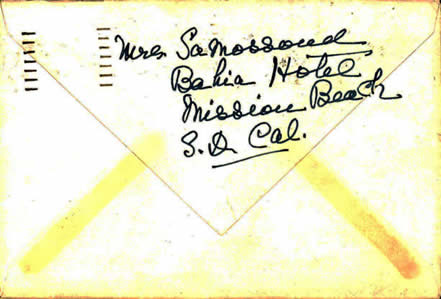 Mrs Samossoud
Bahia Hotel
Mission Beach
S.D. Cal.